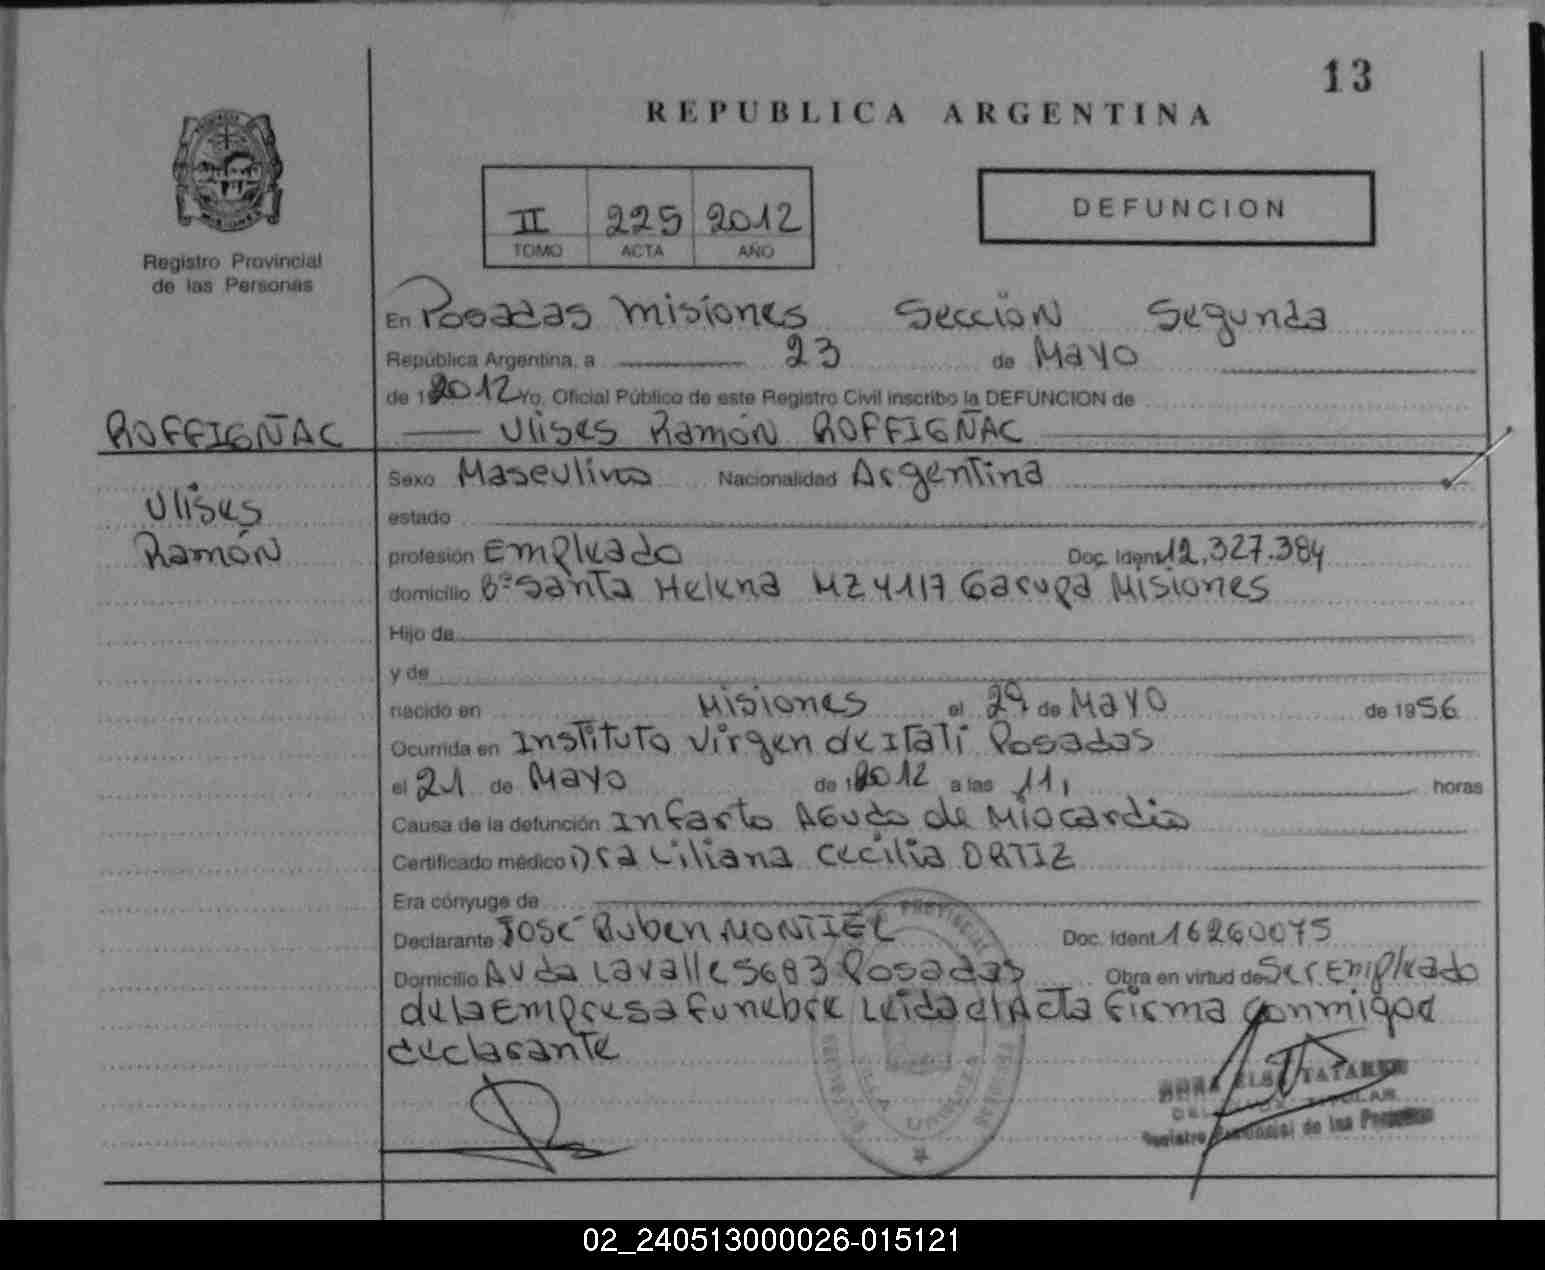 13
REPUBLICA ARGENTINA
II 225 2012
TOMO ACTA AÑO
DEFUNCION
Registro Provincial
de las Personas
En Posadas Misiones Seccion Segunda
República Argentina, a 23 de Mayo
de 2012 Yo, Oficial Público de este Registro Civil inscribo la DEFUNCION de
ROFFIGÑAC
Ulises Ramón ROFFIGÑAC
Ulises
Ramón
Sexo Masculino Nacionalidad Argentina
estado
profesión Empleado Doc. Ident 12.327.384
domicilio Bº Santa Helena MZ 4117 Garupa Misiones
Hijo de
y de
nacido en Misiones el 29 de Mayo de 1956
Ocurrida en Instituto Virgen de Itatí Posadas
el 21 de Mayo de 2012 a las 11, horas
Causa de la defunción Infarto Agudo de Miocardio
Certificado médico Dra Liliana Cecilia ORTIZ
Era cónyuge de
Declarante José Ruben MONTIEL Doc. Ident. 16260075
Domicilio Avda Lavalle 5683 Posadas Obra en virtud de Ser Empleado
de la Empresa Funebre Leida el Acta Firma Conmigo el
declarante
Registro Provincial de las Personas
02_240513000026-015121